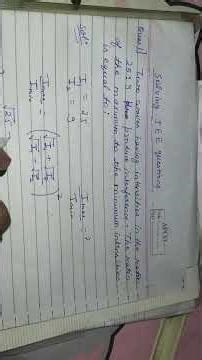 Solving JEE questions
Ques:1) Two waves having intensities in the ratio
25:9 produce interference. The ratio
of the maximum to the minimum intensities
is equal to:
Sol:- I₁ = 25 Imax = ?
I₂ = 9 Imin
Imax = (√I₁ + √I₂)²
Imin (√I₁ - √I₂)
√25